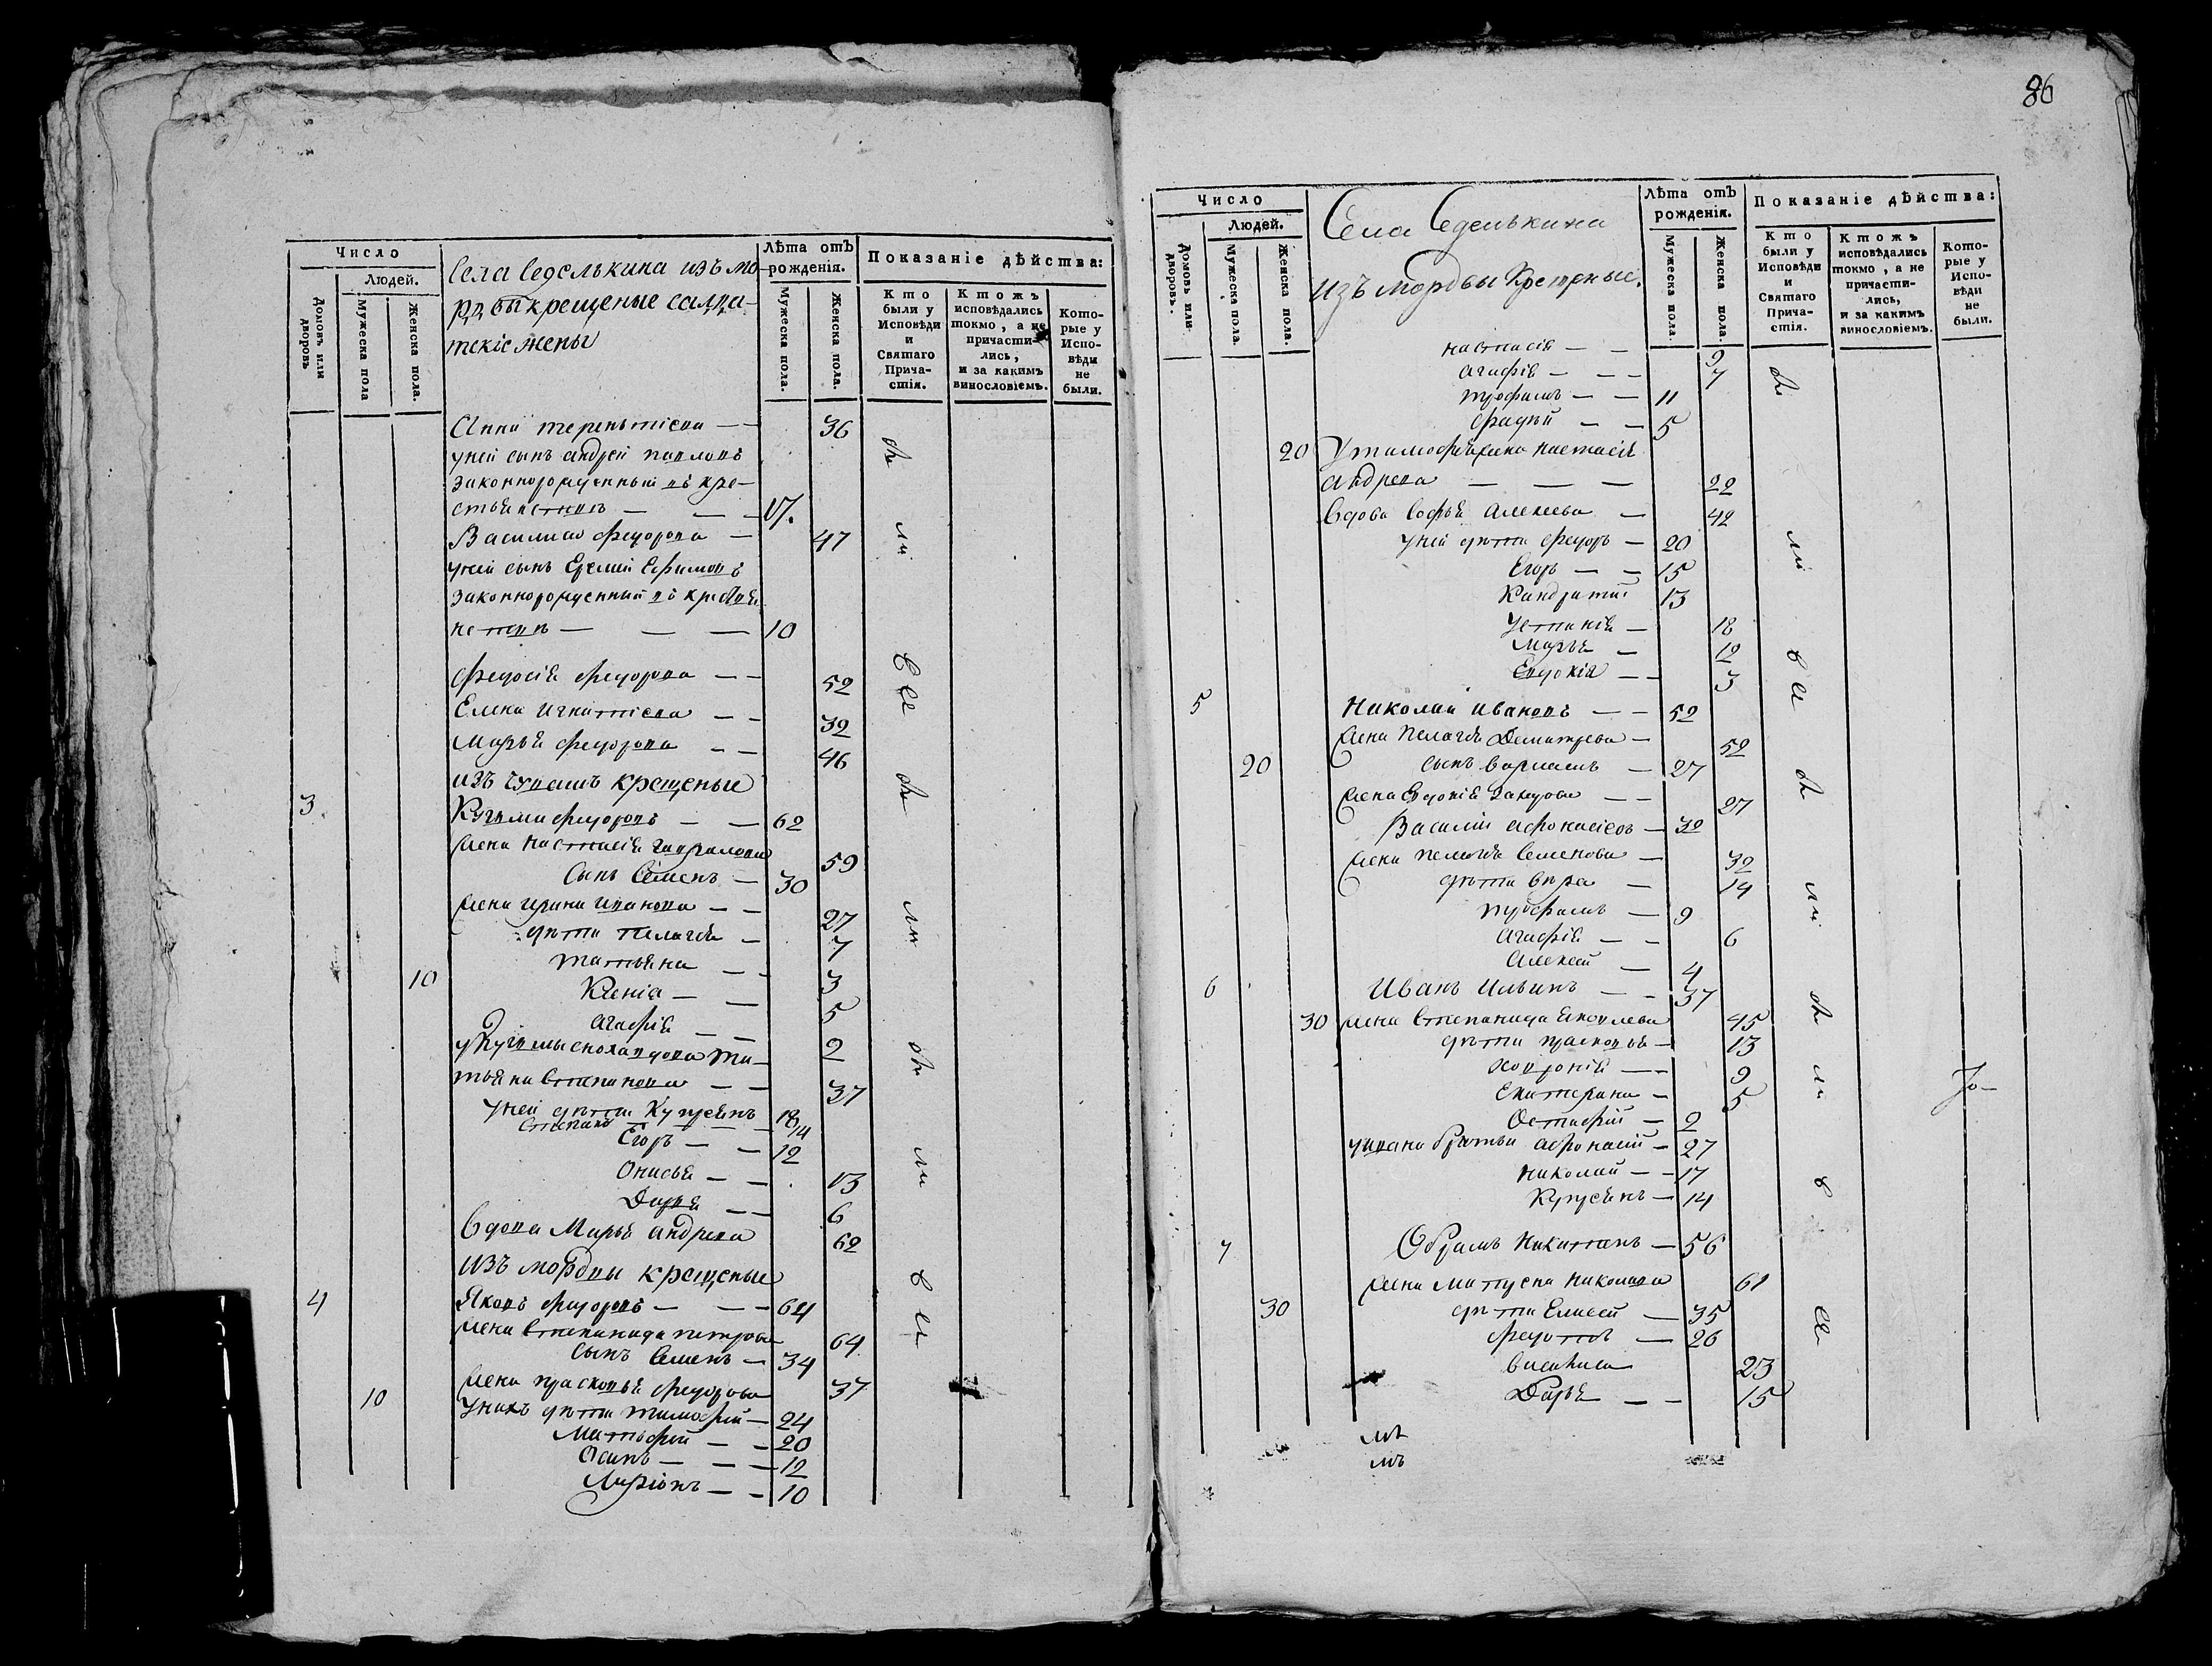 Число
Людей.
Домовъ или дворовъ
Мужеска пола
Женска пола.
Села Седелькина изъ мо-
рдвы крещеные салда-
текіе жены
Лѣта отъ рожденія.
Мужеска пола.
Женска пола.
Показаніе дѣйства:
Кто были у Исповѣди и Святаго Прича-стія.
Ктожъ исповѣдались токмо, а не причасти-лись, и за какимъ винословіемъ.
Кото-рые у Испо-вѣди не были.
Анна терентіева — — 36
уней сынъ андрей павловъ
законнорожденный въ кре-
стьянствѣ — — — 17.
Василиса федорова — 47
уней сынъ Ефимовъ
законнорожденный въ
10
федосія федорова — — 52
Елена игнатіева — — 32
Марья федорова — — 46
изъ чувашъ крещеные
3 Кузма федоровъ — — 62
жена настасія гаврилова 59
Сынъ Семенъ — 30
жена ирина иванова — — 27
дѣти пелагея — 7
татьяна — — 3
10 Ксенія — — 5
агафія — — 2
у Кузмы сноха вдова та-
тьяна степанова — — 37
уней дѣти Купреянъ 18
Степанъ — — — 14
Егоръ — — 12
Онисья — — 13
Дарья — — 6
вдова Марья андреева 62
изъ мордвы крещеные
4 Яковъ федоровъ — — — 64
жена степанида петрова 64
сынъ Семенъ — 34
жена прасковья федорова 37
10 унихъ дѣти тимофей — 24
Матьфей — — 20
Осипъ — — — 12
Ларіонъ — — 10
86
Число
Людей.
Домовъ или дворовъ.
Мужеска пола.
Женска пола.
Села Седелькина
изъ мордвы крещеные.
Лѣта отъ рожденія.
Мужеска пола.
Женска пола.
Показаніе дѣйства:
Кто были у Исповѣди и Святаго Прича-стія.
Ктожъ исповѣдались токмо, а не причасти-лись, и за какимъ винословіемъ.
Кото-рые у Испо-вѣди не были.
настасія — — 9
агафія — — — 7
трофимъ — — 11
фадѣй — — 5
20 У тимофѣя жена настасія
андреева — — — 22
вдова софья алексеева — 42
уней дѣти федоръ — 20
Егоръ — — 15
Кандратій 13
устинія — 18
Марья — 12
Евдокія — — 3
5 николай ивановъ — — 52
жена пелагея Димитрева — 52
20 сынъ варламъ — 27
жена Евдокія — — 27
Василий афонасіевъ — 32
жена пелагея семенова — 32
дѣти вера — 14
трофимъ — 9
агафія — — 6
алексей — 4
6 иванъ ильинъ — — 37
30 жена степанида яковлева 45
дѣти прасковья — 13
ховронія — — 9
Екатерина — 5
Остафій — 2
у ивана братья афонасій — 27
николай — — 17
Купреянъ — 14
7 Обрамъ никитинъ — 56
жена матрена николаева 61
30 дѣти Елисей — 35
федотъ — 26
василиса 23
Дарья — — 15